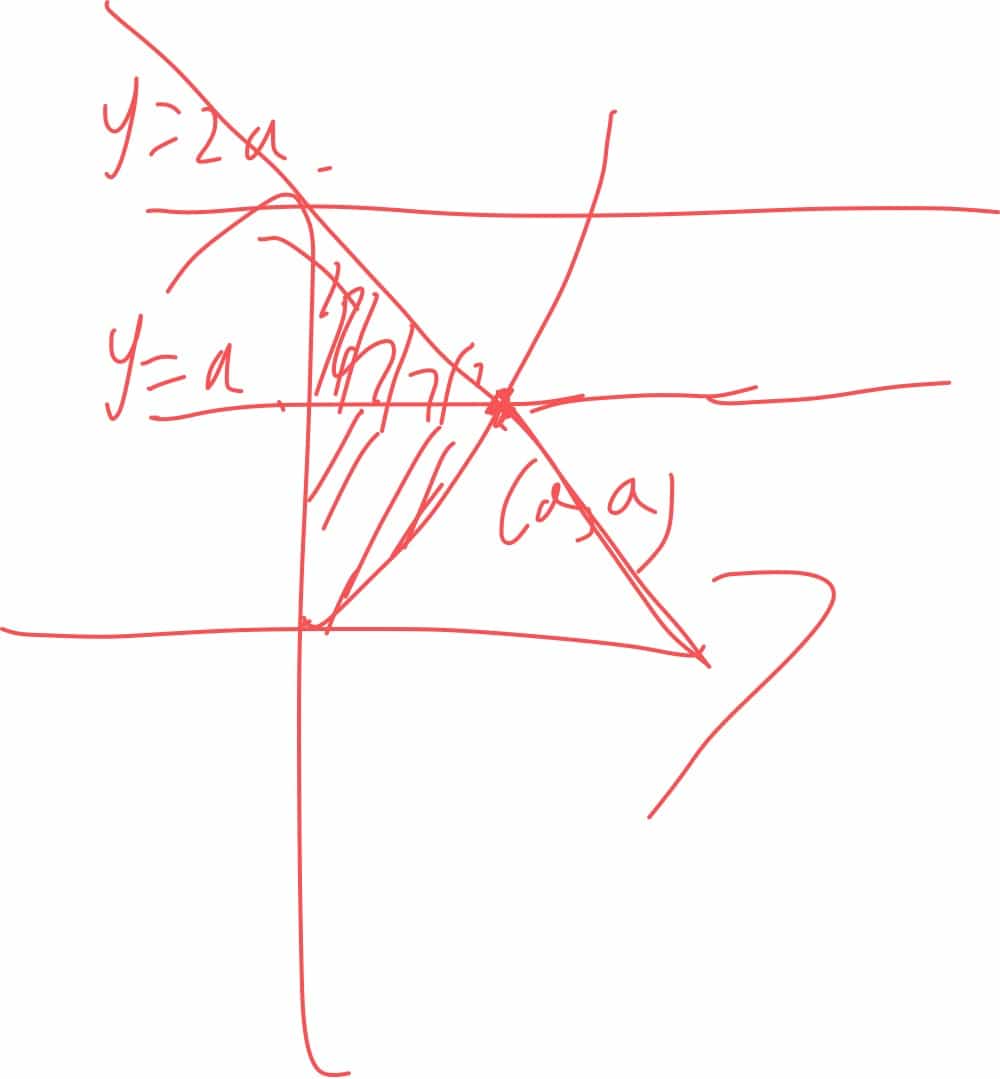 y=2a
y=a
(a, a)